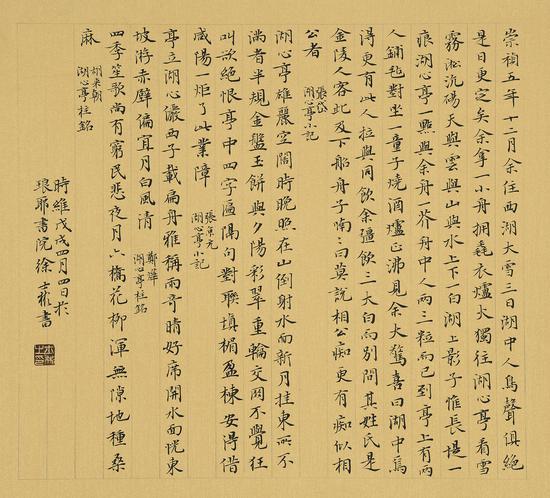 崇禎五年十二月余住西湖大雪三日湖中人鳥聲俱絕
是日更定矣余拏一小舟擁毳衣爐火獨往湖心亭看雪
霧淞沆碭天與雲與山與水上下一白湖上影子惟長堤一
痕湖心亭一點與余舟一芥舟中人兩三粒而已到亭上有兩
人鋪氈對坐一童子燒酒爐正沸見余大驚喜曰湖中焉
得更有此人拉與同飲余彊飲三大白而別問其姓氏是
金陵人客此及下船舟子喃々曰莫說相公痴更有痴似相
公者
張岱
湖心亭小記
湖心亭雄麗空闊時晚照在山倒射水面新月挂東所不
滿者半規金盤玉餅與夕陽彩翠重輪交网不覺狂
叫欲絕恨亭中四字匾隔句對聯填楣盈棟安得借
咸陽一炬了此業障
張京元
湖心亭小記
亭立湖心儼西子載扁舟雅稱雨奇晴好席開水面恍東
坡游赤壁偏宜月白風清
鄭燁
湖心亭柱銘
四季笙歌尚有窮民悲夜月六橋花柳渾無隙地種桑
麻
胡來朝
湖心亭柱銘
時維戊戌四月四日於
琅耶書院徐士彬書